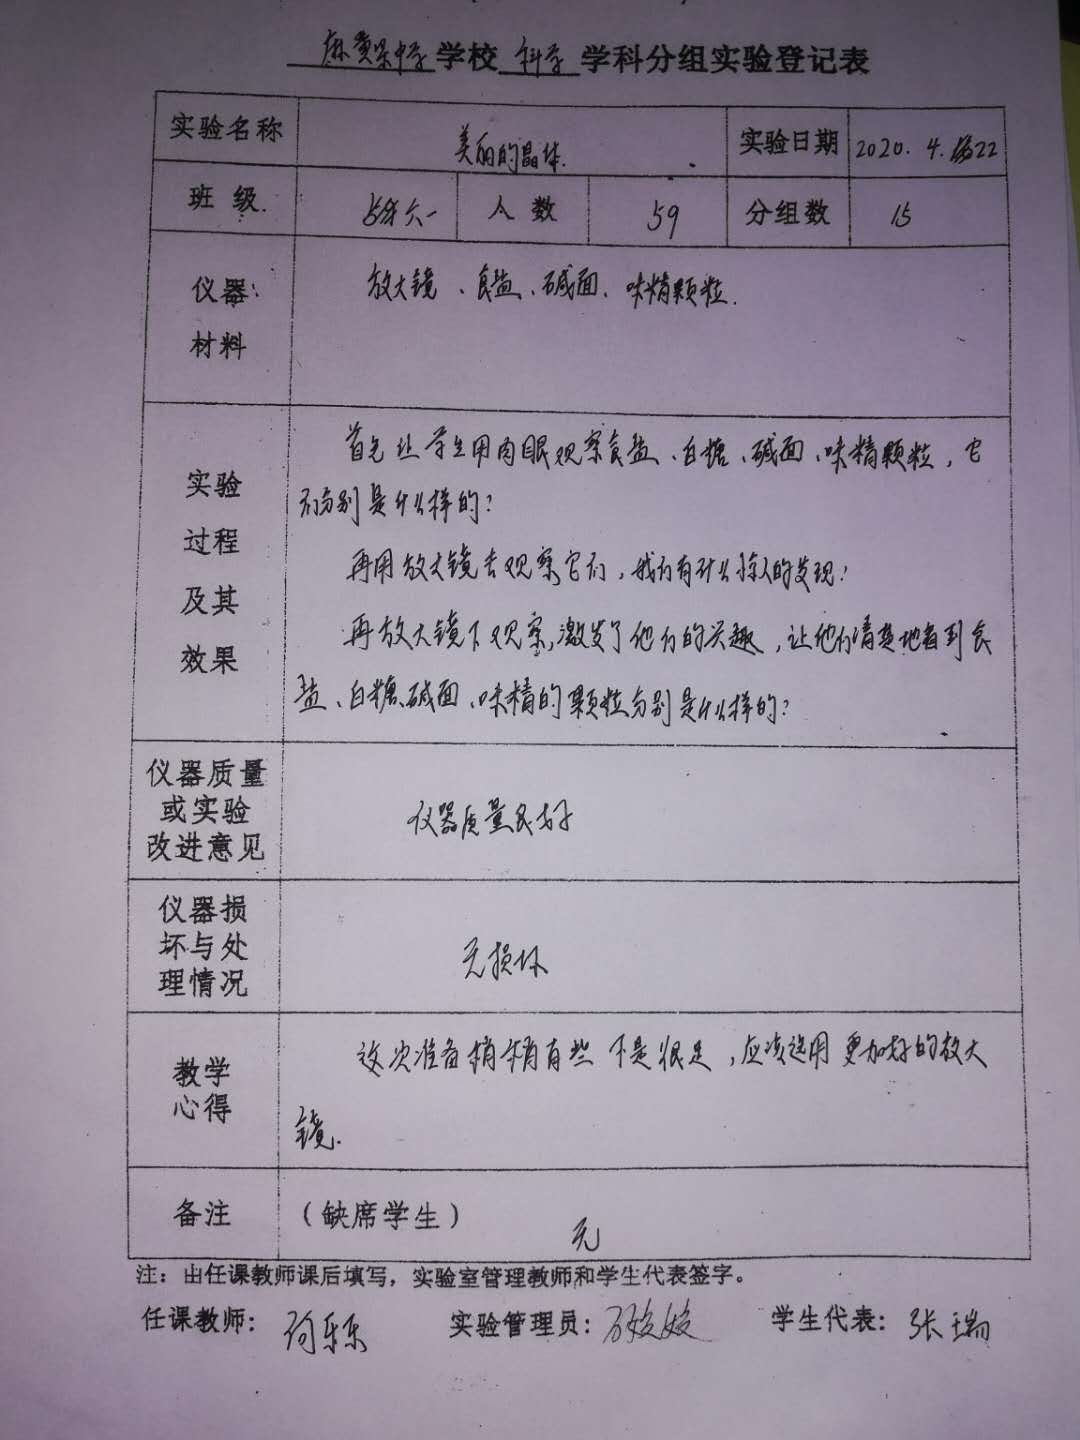 学校 科学 学科分组实验登记表
实验名称 美丽的晶体. 实验日期 2020.4.22
班 级. 人 数 59 分组数 15
仪器 材料 放大镜、食盐、碱面、味精颗粒.
实验 过程 及其 效果
首先让学生用肉眼观察食盐、白糖、碱面、味精颗粒，它
们分别是什么样的？
再用放大镜去观察它们，我们有什么惊人的发现？
再放大镜下观察，激发了他们的兴趣，让他们清楚地看到食
盐、白糖、碱面、味精的颗粒分别是什么样的？
仪器质量
或实验
改进意见
仪器质量良好
仪器损
坏与处
理情况
无损坏
教学
心得
这次准备稍稍有些不是很足，应该选用更加好的放大
镜.
备注 （缺席学生） 无
注：由任课教师课后填写，实验室管理教师和学生代表签字。
任课教师： 实验管理员： 学生代表：张瑞